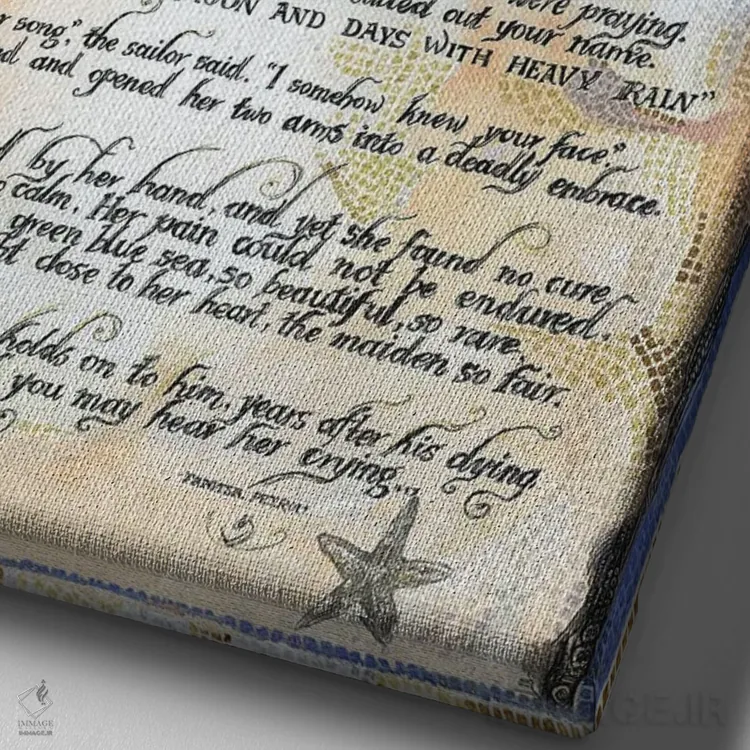 were praying.
called out your name.
MOON AND DAYS WITH HEAVY RAIN"
song," the sailor said. "I somehow knew your face,"
and opened her two arms into a deadly embrace.
by her hand, and yet she found no cure
calm. Her pain could not be endured.
green blue sea, so beautiful, so rare,
close to her heart, the maiden so fair.
holds on to him, years after his dying
you may hear her crying...
IMMAGE
IMMAGE.IR
GE.IR